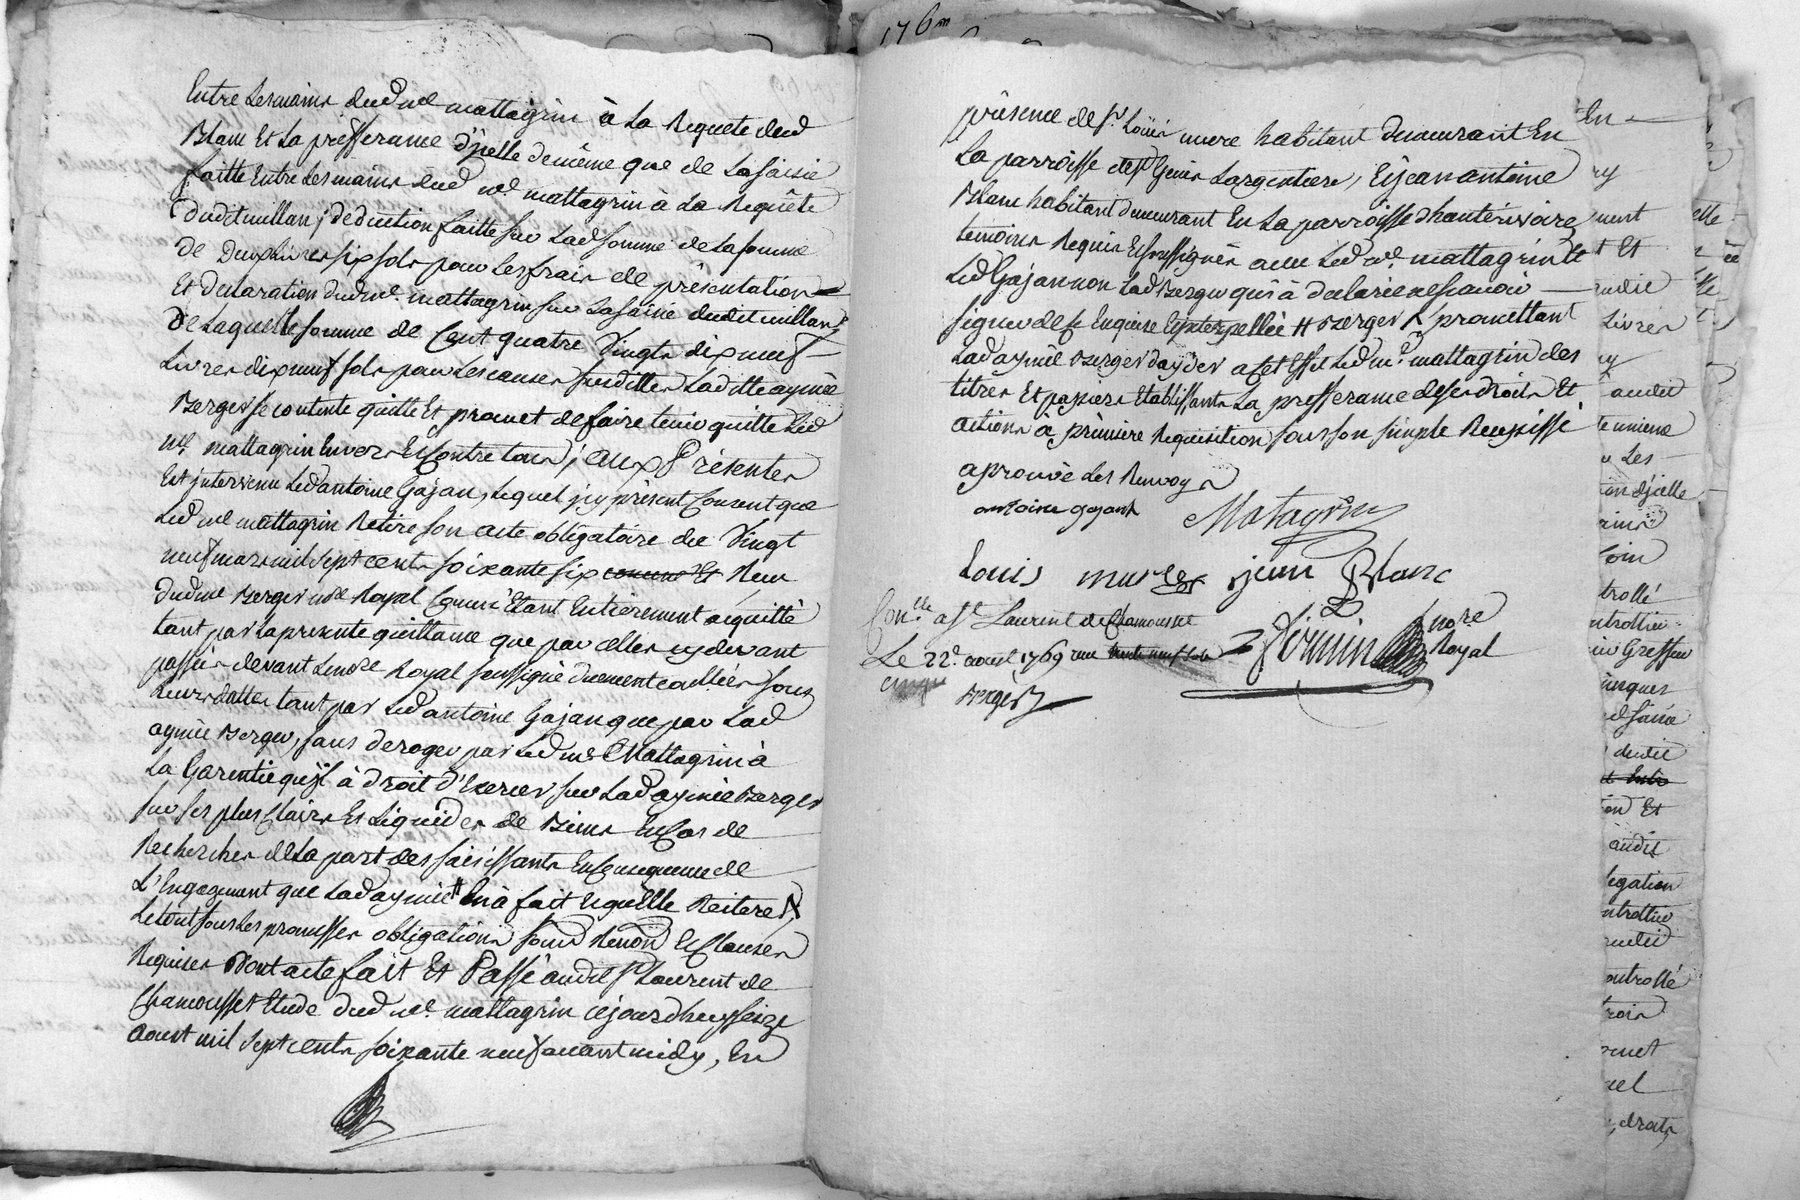 Entre Les mains dud me mattagrin à La Requete dud
Blanc Et La presserance d'jcelle de même que de La saisie
faitte Entre Les mains dud me mattagrin à La Requête
dudit millan; deduction faitte sur Lad somme de La somme
de Deux Livres six sols pour Les frais de présentation
Et declaration dud me. mattagrin sur La saisie dudit millan;
de Laquelle somme de Cent quatre Vingts dix neuf
Livres dix neuf sols pour Les causes susdittes Laditte aymée
Berger se contente quitte Et promet de faire tenir quitte Led
me. mattagrin Envers Et Contre tous; aux Présentes
Est jntervenu Led antoine Gajan, Lequel jcy présent Consent que
Led me mattagrin Retire son acte obligatoire du Vingt
neuf mars mil sept cents soixante six Reçu
dud me Berger nore Royal Comme Etant Entièrement acquitté
tant par La presente quittance que par celles cy devant
passées devant Le nore Royal soussigné duement
Leurs dattes tant par Led antoine Gajan que par Lad
aymée Berger, sans deroger par Led me Mattagrin à
La Garentie qu'jl à droit d'Exercer sur Lad aymée Berger
sur ses plus Clairs Et Liquides de Biens En Cas de
Recherches de La part des saisissants En Consequence de
L'Engagement que Lad aymée En à fait Lequ'Elle Reitere
Le tout sous Les promesses obligations soumd Renond Et Clauses
Requises Dont acte fait Et Passé audit st Laurent de
Chamousset Etude dud me. mattagrin cejourdhuy seize
aoust mil sept cents soixante neuf avant midy, En
présence de sr. Loüis mure habitant demeurant En
La parroisse de st Genis Largentiere, Et jean antoine
Blanc habitant demeurant En La parroisse d'hauterivoire
temoins Requis Et soussignés avec Led me. mattagrin Et
Led Gajan non Lad Berger qui à declaré ne sçavoir
signer de ce Enquise Et jnterpellée # Berger promettant
Lad aymée Berger d'ayder a cet Effet Led me. mattagrin des
titres Et papiers Etablissants La presserance de ses droits Et
actions à prémière Requisition sous son simple Recepissé
aprouvé Les Renvoys
antoine gayant Matagrin
Louis mure jean Blanc
Conllé a st Laurent de Chamousset
Le 22e. aout 1769 reçu
cinq
Berger
nore
Royal